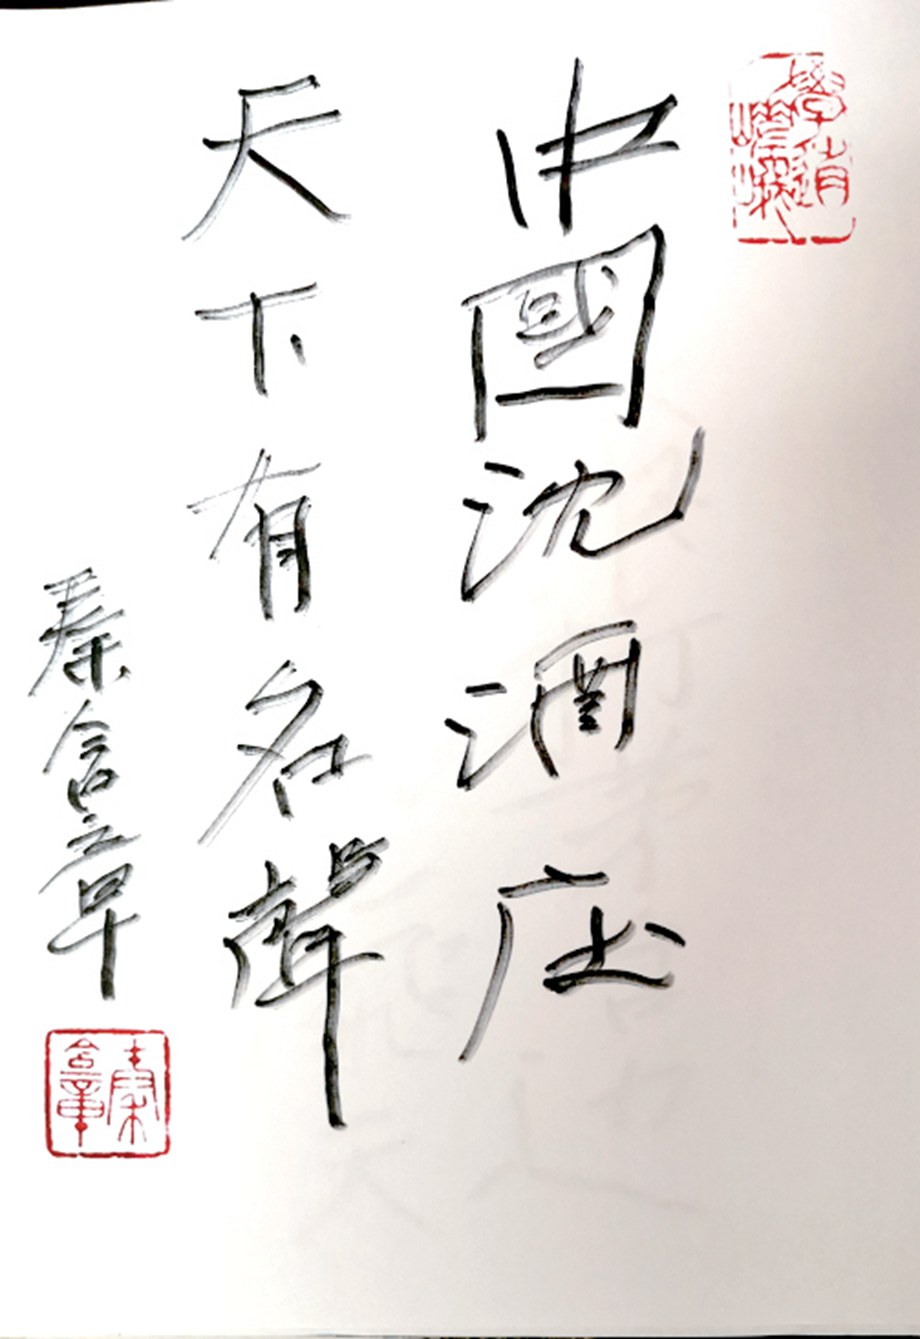 中國沈酒庄
天下有名聲
秦含章
秦含章